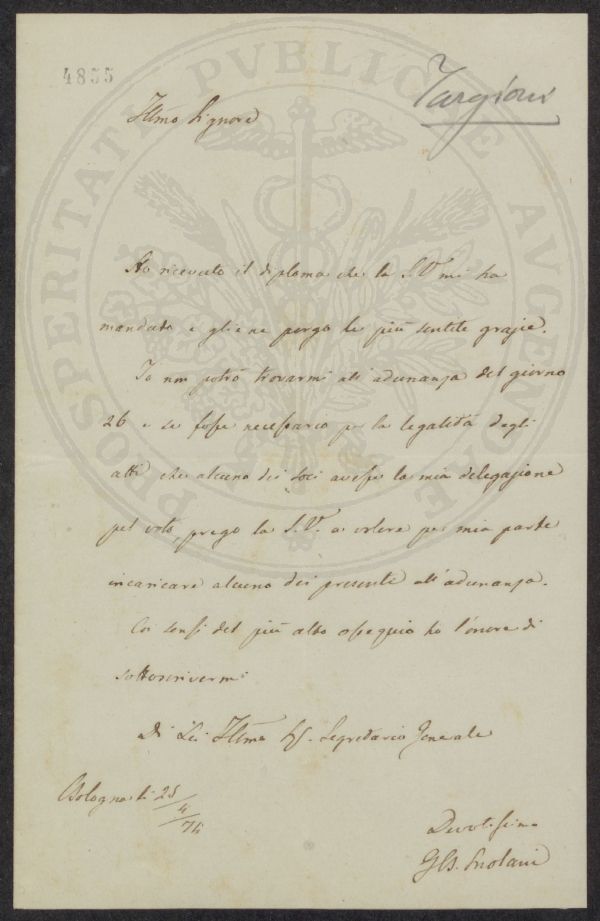 4855
Targioni
Illmo Signore
Ho ricevuto il diploma che la S.V. mi ha
mandato e gliene porgo le più sentite grazie.
Io non potrò trovarmi all'adunanza del giorno
26 e se fosse necessario per la legalità degli
atti che alcuno dei soci avesse la mia delegazione
pel voto, prego la S.V. a volere per mia parte
incaricare alcuno dei presenti all'adunanza.
Coi sensi del più alto ossequio ho l'onore di
sottoscrivermi
Di Lei Illmo Sig. Segretario Generale
Bologna li 25/4/74
Devotissimo
PROSPERITATI PVBLICAE AVGENDAE